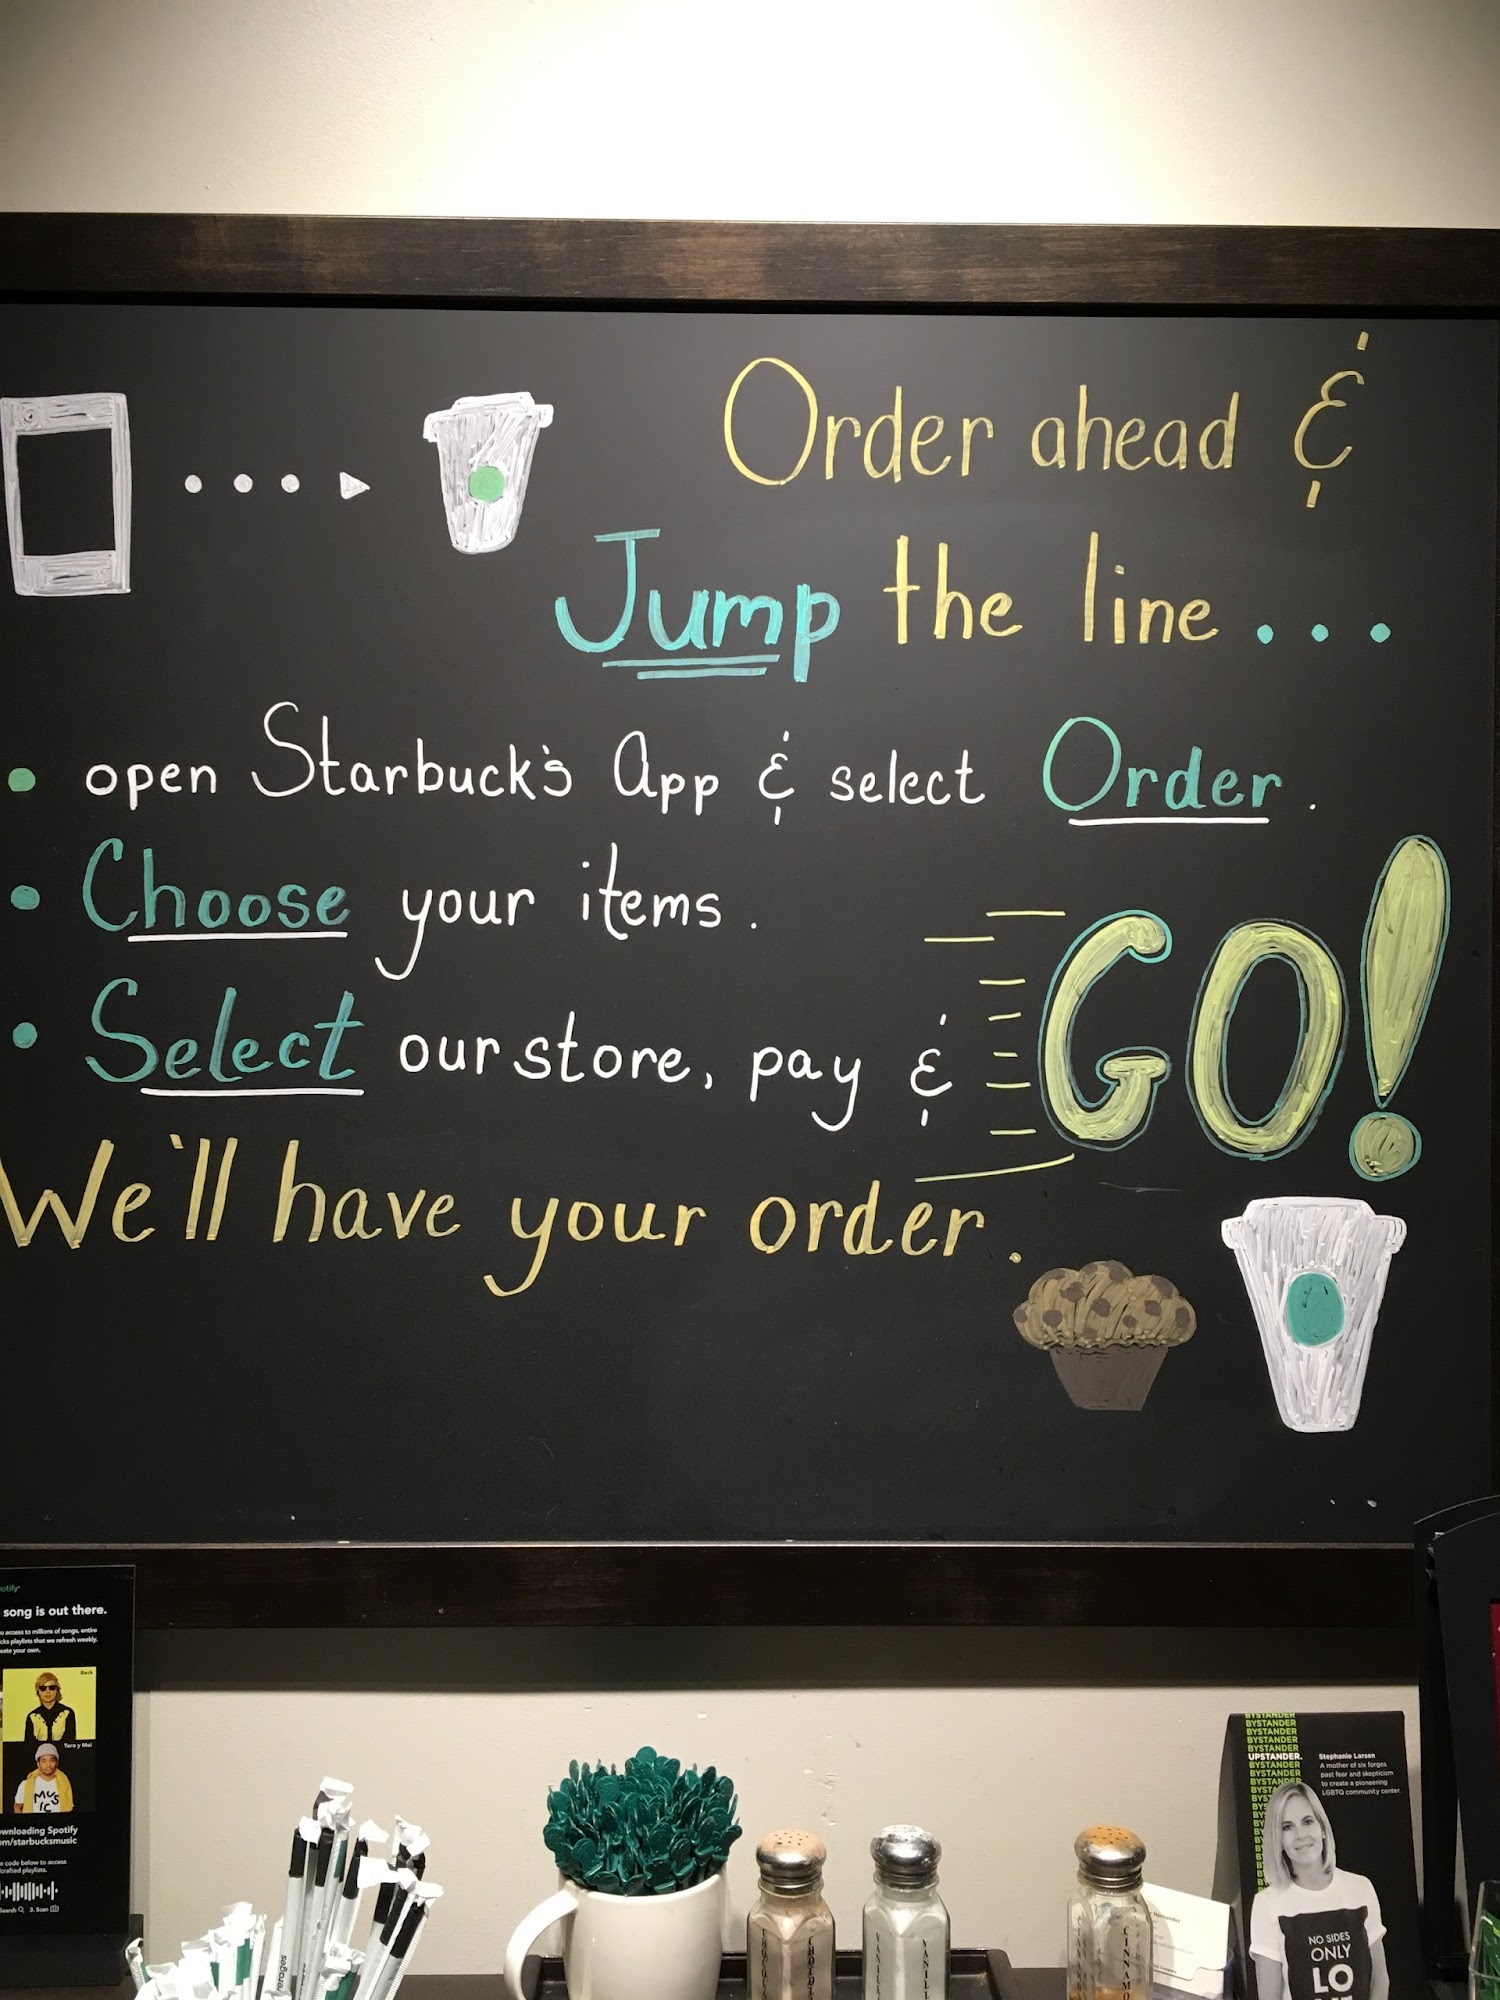 Order ahead &
Jump the line...
• open Starbuck's App & select Order.
• Choose your items.
• Select our store, pay & GO!
We'll have your order.
song is out there.
access to millions of songs, entire
playlists that we refresh weekly.
your own.
Beck
Toro y Moi
MUS
IC
Spotify
/starbucksmusic
code below to access
playlists.
Search 3. Scan
BYSTANDER
BYSTANDER
BYSTANDER
BYSTANDER
BYSTANDER
UPSTANDER.
BYSTANDER
BYSTANDER
BYSTANDER
BYSTANDER
Stephanie Larsen
A mother of six forges
past fear and skepticism
to create a pioneering
LGBTQ community center.
NO SIDES
ONLY
LO
VANILLA
CINNAMO